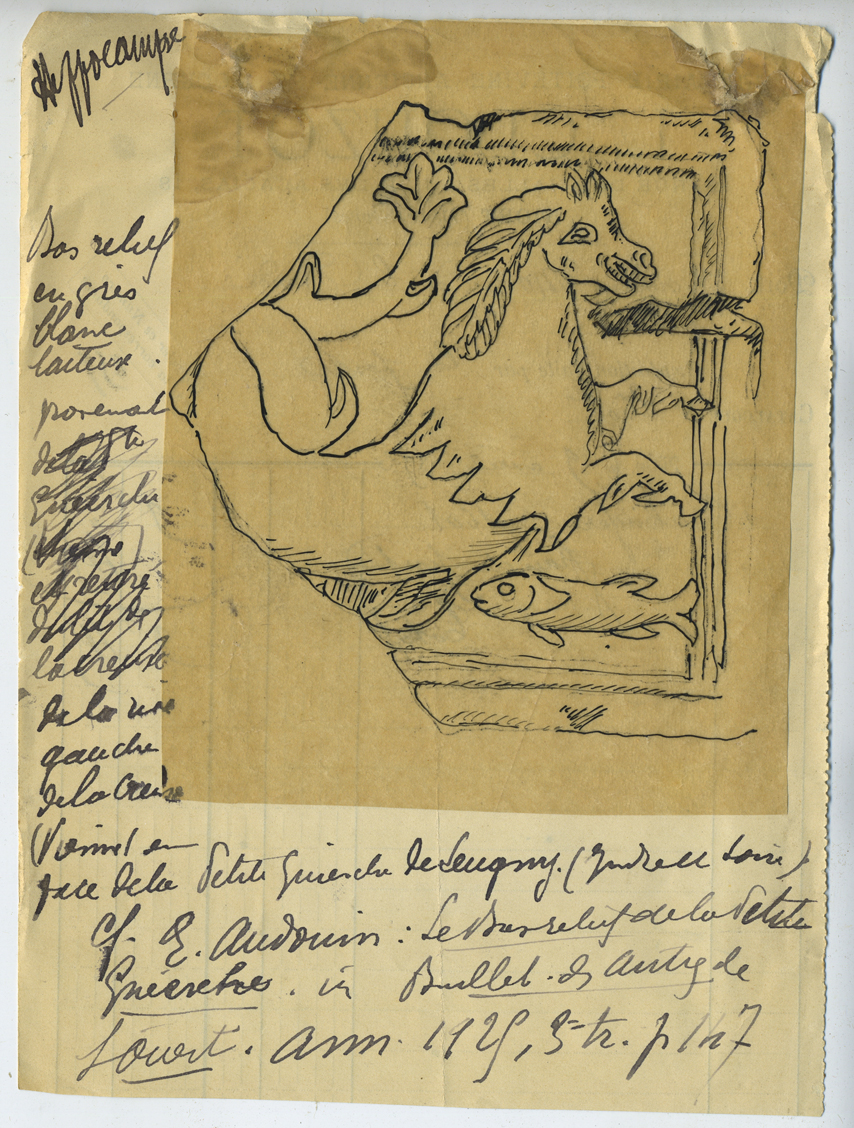 Hippocampe
Bas relief
en grès
blanc
laiteux.
provenant
de la
Guierche
(Vienne)
et retiré
du lit de
la Creuse
de la rive
gauche
de la Creuse
(Vienne) en
face de la Petite Guierche de Leugny. (Indre et Loire)
Cf. E. Audouin : Le Bas relief de la Petite
Guierche. in Bullet. d. Antiq de
l'Ouest. ann. 1925, 3e tr. p 147